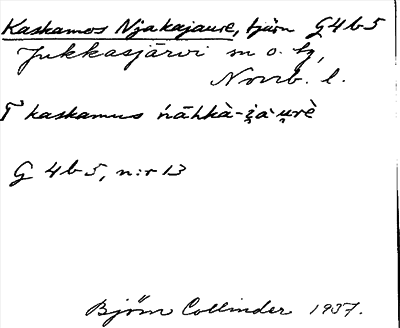 Kaskamos Njakajaure, tjärn G4b5
Jukkasjärvi sn o. tg,
Norrb. l.
T kaskamus ńāhkà-i̯a·u̯rè
G 4b5, n:r 13
Björn Collinder 1937.